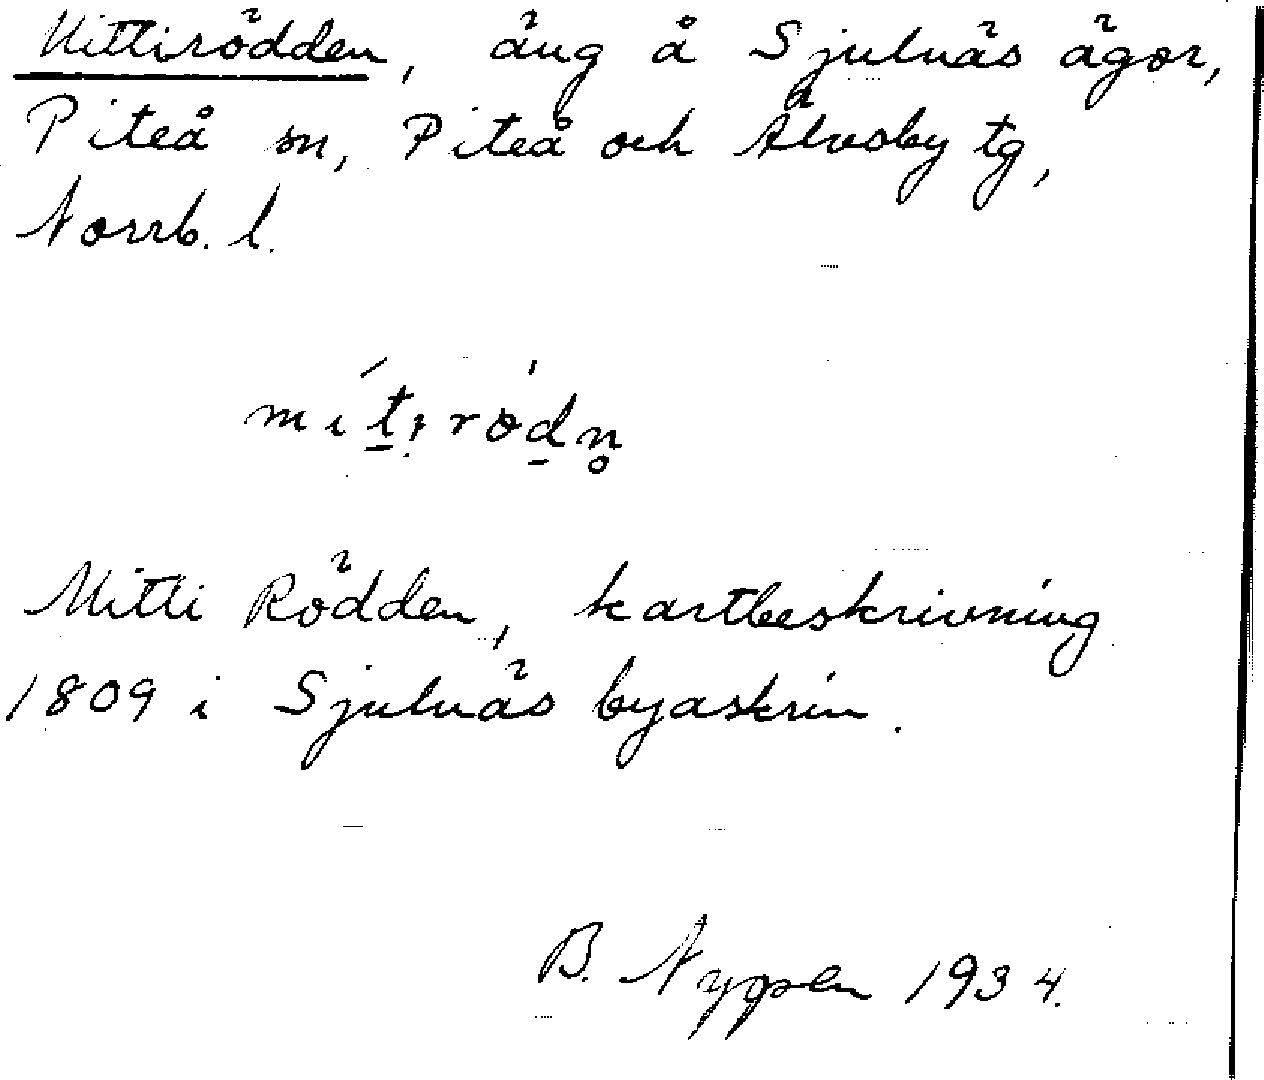 Mittirödden, äng å Sjulnäs ägor,
Piteå sn, Piteå och Älvsby tg,
Norrb. l.
mít̠iródn̥
Mitti Rödden, kartbeskrivning
1809 i Sjulnäs byaskrin.
B. Nygren 1934.